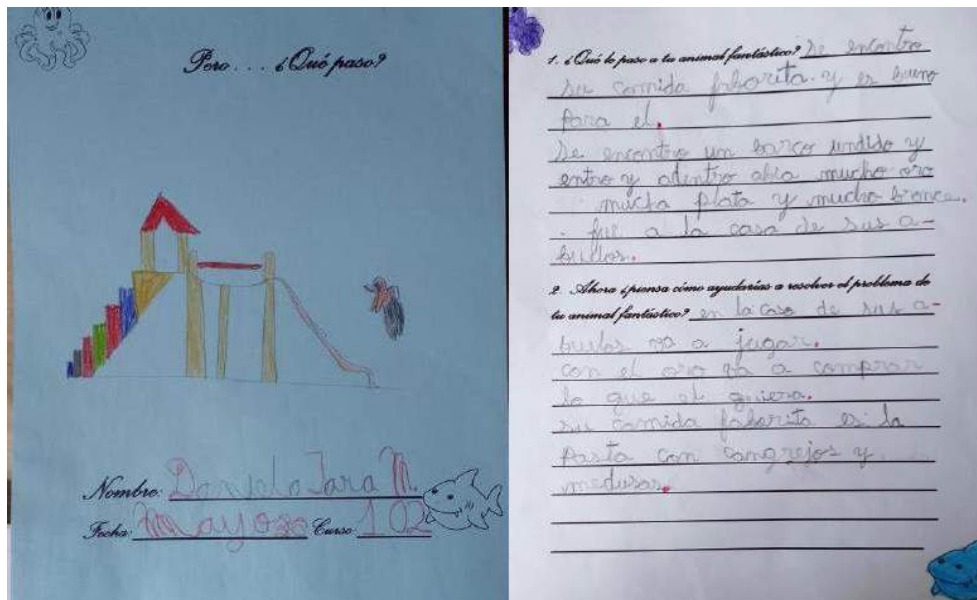 Pero... ¿Qué paso?
Nombre: Danielo Jara M.
Fecha: Mayo 20 Curso: 102
1. ¿Qué le paso a tu animal fantástico? Se encontro
su comida faborita. y es bueno
Para el.
Se encontro un barco undido y
entro y adentro abia mucho oro
mucha plata y mucho bronce.
. fue a la casa de sus a-
buelos.
2. Ahora ¿piensa cómo ayudarías a resolver el problema de
tu animal fantástico? en la casa de sus a-
buelos va a jugar.
con el oro va a comprar
lo que el quiera.
su comida faborita es la
Pasta con cangrejos y
medusas.